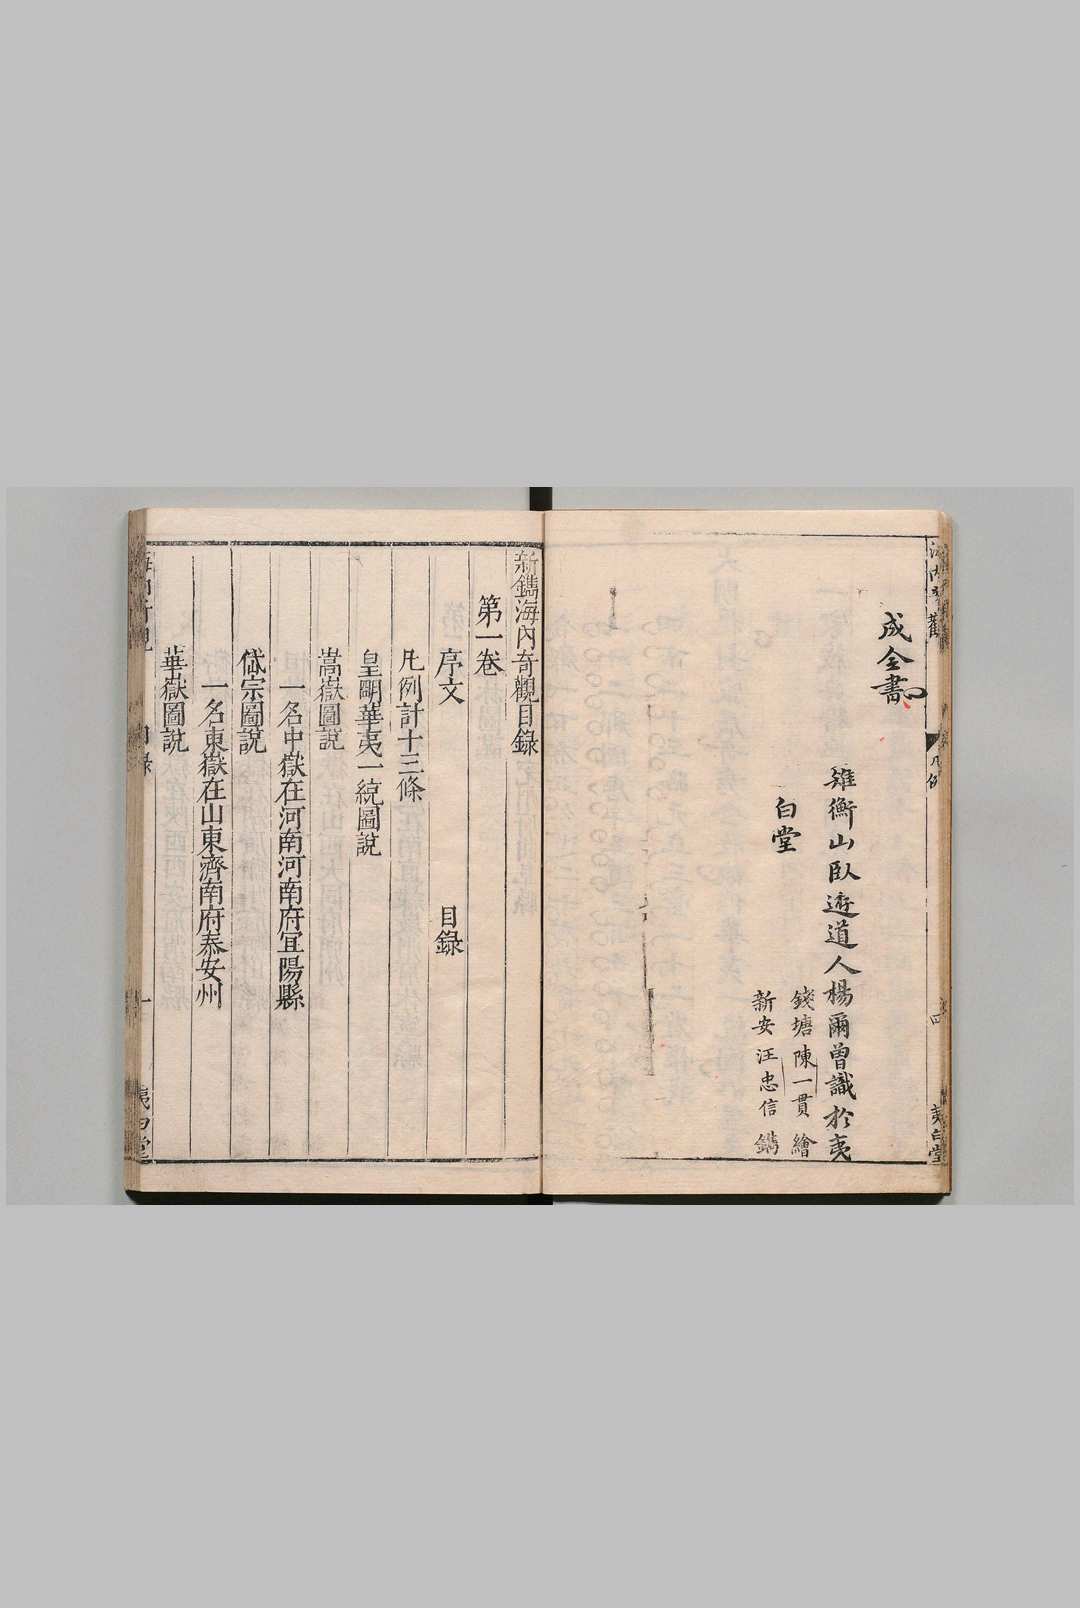 海内奇觀
凡例
四
夷白堂
成全書
雉衡山臥遊道人楊爾曾識於夷
白堂
錢塘陳一貫繪
新安汪忠信鐫
新鐫海內奇觀目錄
第一卷
序文 目錄
凡例計十三條
皇明華夷一統圖說
嵩嶽圖說
一名中嶽在河南河南府宜陽縣
岱宗圖說
一名東嶽在山東濟南府泰安州
華嶽圖說
海内奇觀
目錄
一
夷白堂